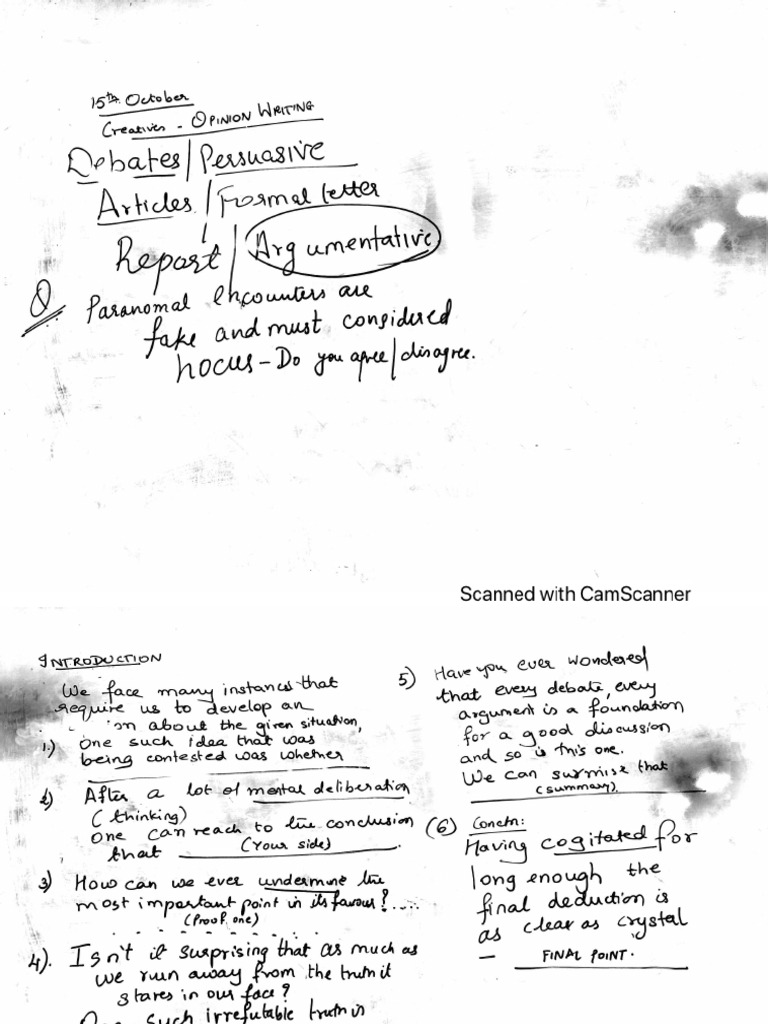 15th October
Creatives - OPINION WRITING
Debates / Persuasive
Articles / Formal letter
Report / Argumentative
Q Paranomal encounters are
fake and must considered
hocus - Do you agree / disagree.
Scanned with CamScanner
INTRODUCTION
We face many instances that
require us to develop an
about the given situation,
1.) One such idea that was
being contested was whether
2) After a lot of mental deliberation
(thinking)
one can reach to the conclusion
that
(Your side)
3) How can we ever undermine the
most important point in its favour?.....
(Proof one)
4). Isn't it surprising that as much as
we run away from the truth it
stares in our face?
One such irrefutable truth is
5) Have you ever wondered
that every debate, every
argument is a foundation
for a good discussion
and so is this one.
We can surmise that
(summary).
(6) Concln:
Having cogitated for
long enough the
final deduction is
as clear as crystal
— FINAL POINT.